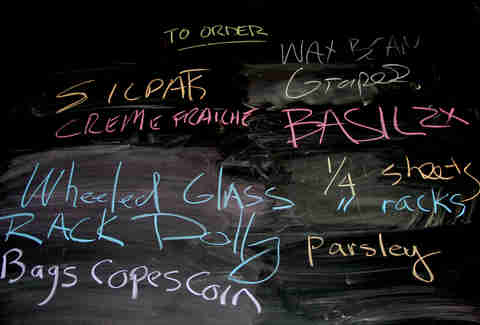 TO ORDER
SILPATS
CREME FRAICHE
Wheeled GLASS
RACK Dolly
Bags Copes Coin
WAX BEAN
Grapes
BASIL 2x
1/4 sheets
" racks
parsley